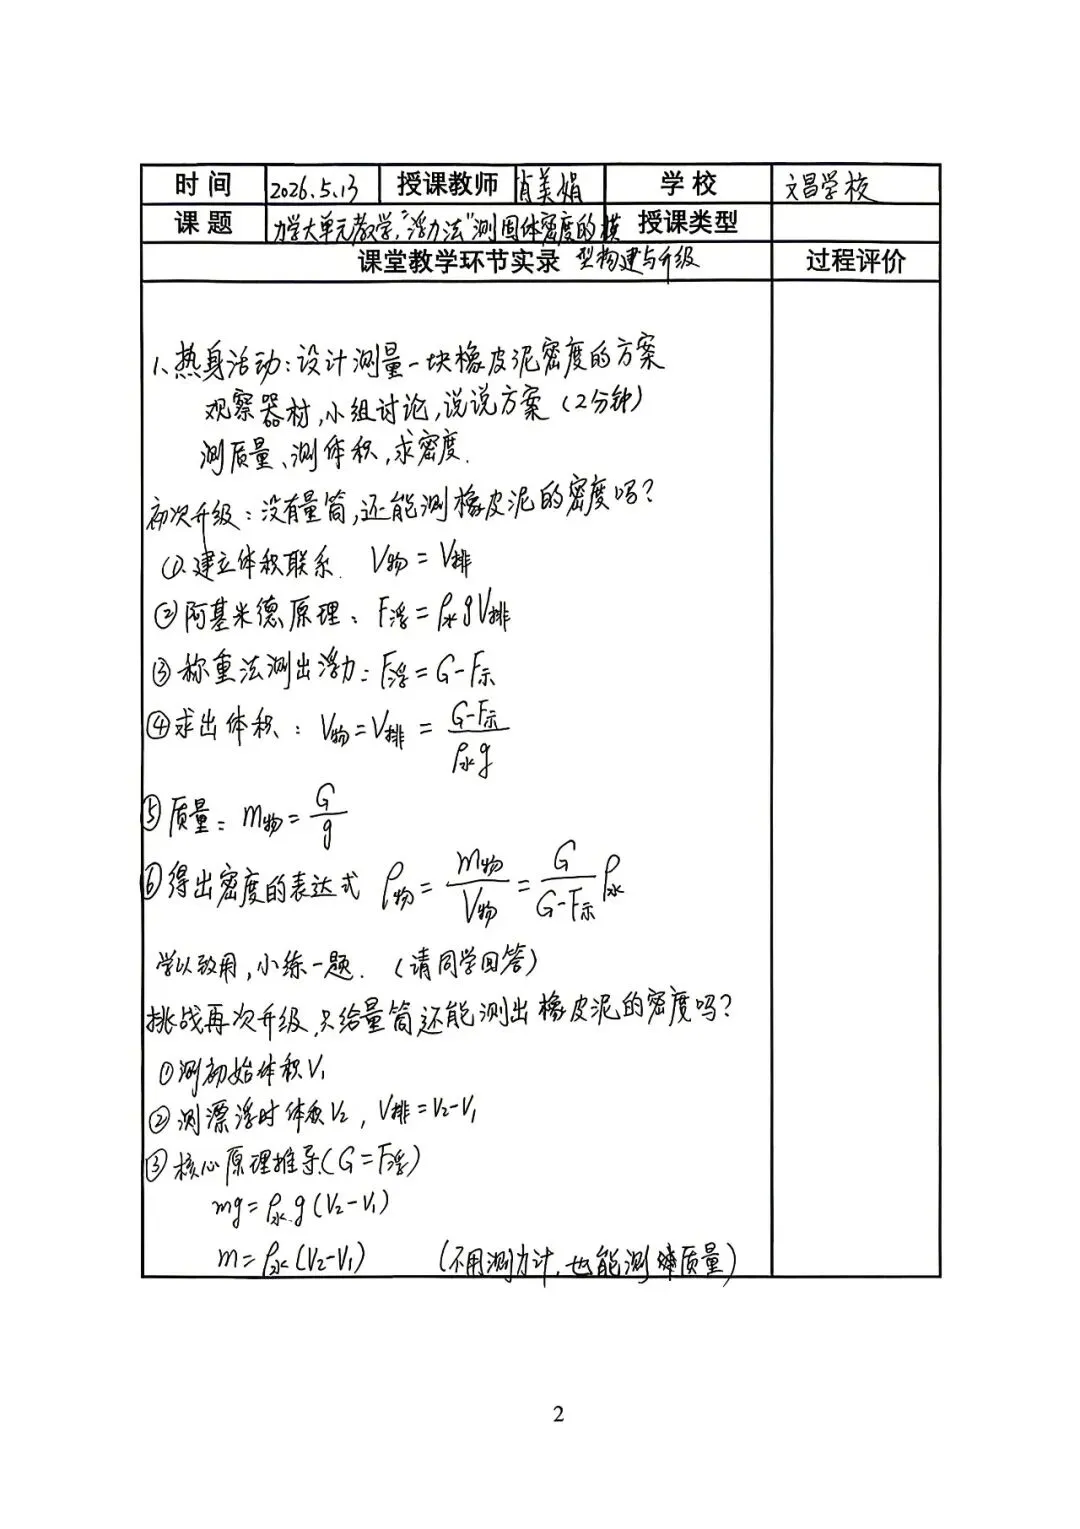 时间 2026.5.13 授课教师 肖美娟 学校 文昌学校
课题 力学大单元教学,“浮力法”测固体密度的模 授课类型
课堂教学环节实录 型构建与升级 过程评价
1、热身活动:设计测量一块橡皮泥密度的方案
观察器材,小组讨论,说说方案(2分钟)
测质量、测体积,求密度.
初次升级:没有量筒,还能测橡皮泥的密度吗?
①.建立体积联系. V物=V排
②阿基米德原理: F浮=ρ水gV排
③称重法测出浮力:F浮=G-F示
④求出体积: V物=V排=(G-F示)/(ρ水g)
⑤质量: m物=G/g
⑥得出密度的表达式 ρ物=m物/V物=G/(G-F示)ρ水
学以致用,小练一题.(请同学回答)
挑战再次升级,只给量筒还能测出橡皮泥的密度吗?
①测初始体积V₁
②测漂浮时体积V₂, V排=V₂-V₁
③核心原理推导.(G=F浮)
mg=ρ水.g(V₂-V₁)
m=ρ水(V₂-V₁) (不用测力计,也能测质量)
2